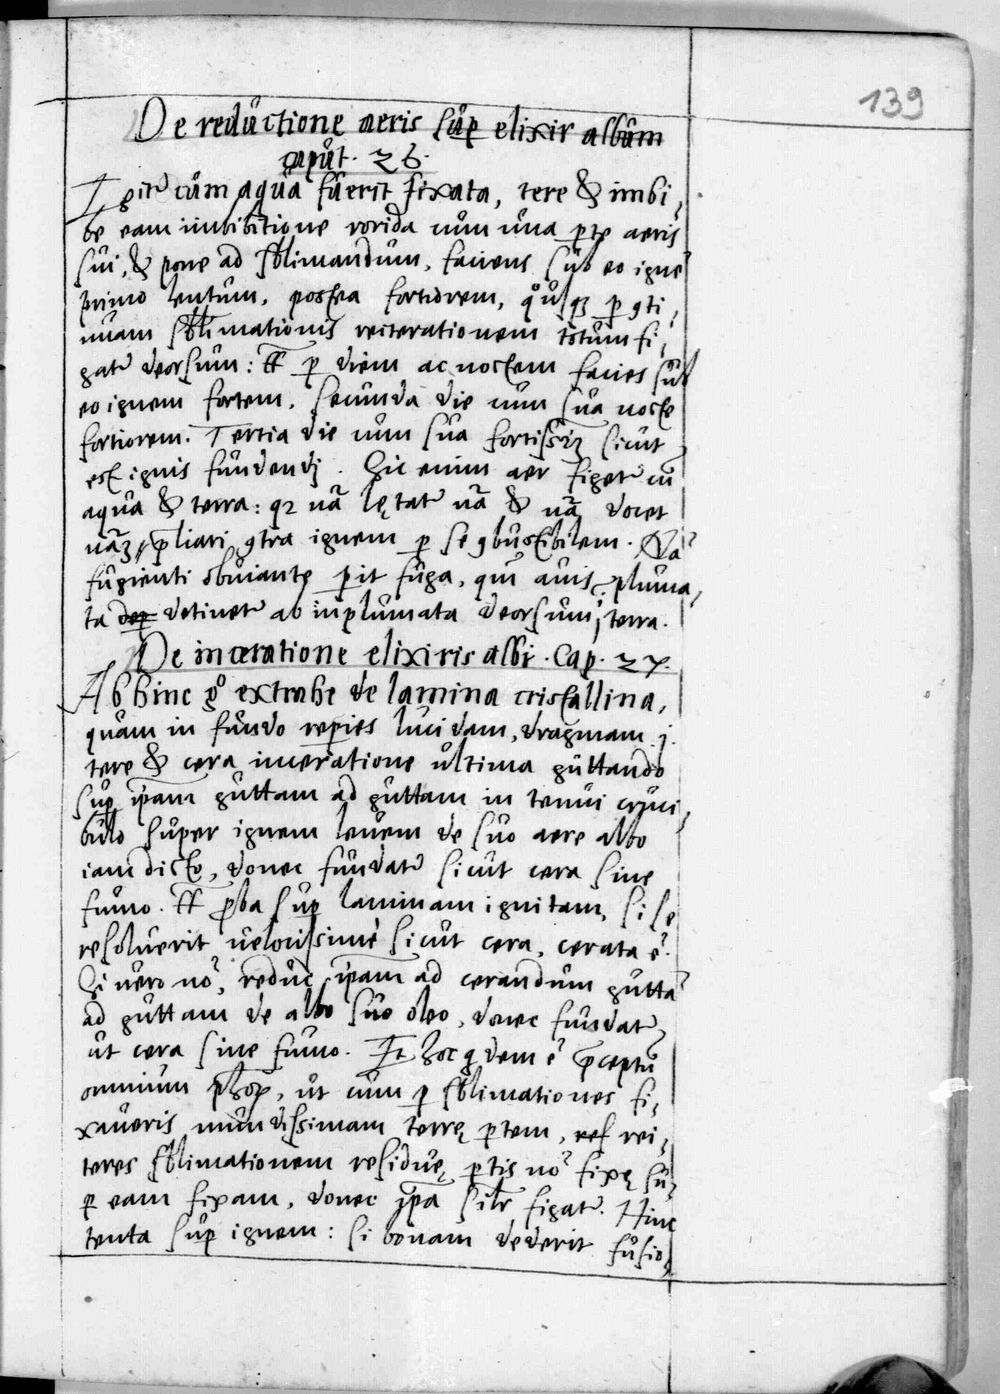 139
De reductione aeris sup elixir album
caput. 26.
Igit' cùm aqua fuerit fixata, tere & imbi,
be eam imbibitione rorida cum una pte aeris
sui, & pone ad sblimandum, faciens sub eo igne
primo lentum, postea fortiorem, qùsq3 p 9ti,
nuam sblimationis reiterationem totum fi,
gat' deorsum: p diem ac noctem facies sub
eo ignem fortem. secunda die cum sua nocte
fortiorem. Tertia die cum sua fortissim sicut
est ignis fundendi. Sic enim aer figet' cū
aqua & terra: q2 nā lętat' nā & nā docet
nā3 pliari 9tra ignem p se 9bustibilem. Nā
fugienti obviante pit fuga, qui avis pluma,
ta dep detinet' ab inplumata deorsum i terra.
De inceratione elixiris albi. Cap. 27.
Ab hinc g° extrahe de lamina cristallina,
quam in fundo repies lucidam, dragmam j.
tere & cera inceratione ultima guttando
sup ipam guttam ad guttam in tenui cruci,
bulo super ignem levem de suo aere albo
iam dicto, donec fundat' sicut cera sine
fumo. pba sup laminam ignitam, si se
resoluerit velocissimè sicut cera, cerata ē.
Si vero nō, reduc ipam ad cerandum guttā
ad guttam de albo suo oleo, donec fundat'
ut cera sine fumo. Et hoc qdem ē pceptū
omnium phop, ut cum p sblimationes fi,
xaveris mundissimam terrę ptem, ref rei,
teres sblimationem residuę ptis nō fixę su,
p eam fixam, donec ipa silr figat'. Hinc
tenta sup ignem: si bonam dederit fusio,